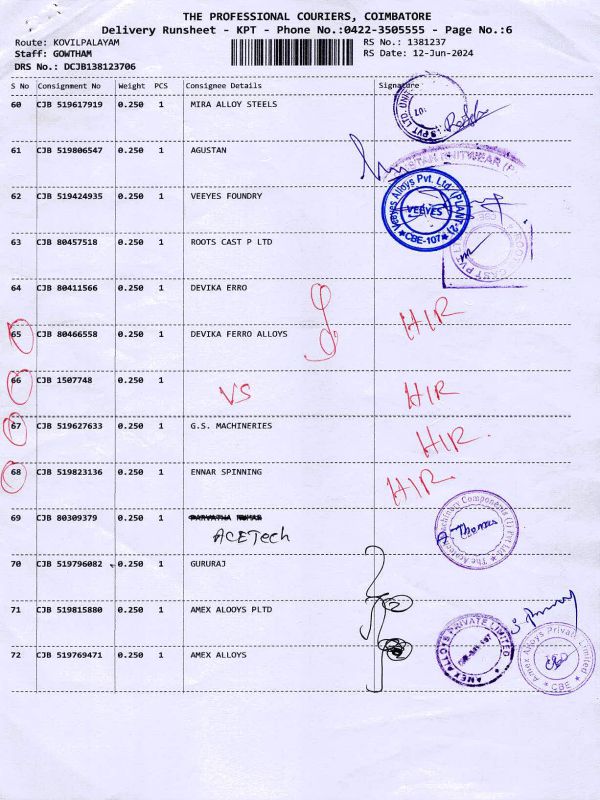 THE PROFESSIONAL COURIERS, COIMBATORE
Delivery Runsheet - KPT - Phone No.:0422-3505555 - Page No.:6
Route: KOVILPALAYAM RS No.: 1381237
Staff: GOWTHAM RS Date: 12-Jun-2024
DRS No.: DCJB138123706
S No Consignment No Weight PCS Consignee Details Signature
60 CJB 519617919 0.250 1 MIRA ALLOY STEELS
61 CJB 519806547 0.250 1 AGUSTAN
KNITWEAR (P
62 CJB 519424935 0.250 1 VEEYES FOUNDRY
Veeyes Alloys Pvt. Ltd. (PLANT-2)
VEEYES
★ CBE-107 ★
63 CJB 80457518 0.250 1 ROOTS CAST P LTD
64 CJB 80411566 0.250 1 DEVIKA ERRO
65 CJB 80466558 0.250 1 DEVIKA FERRO ALLOYS HIR
66 CJB 1507748 0.250 1 VS HIR
67 CJB 519627633 0.250 1 G.S. MACHINERIES HIR.
68 CJB 519823136 0.250 1 ENNAR SPINNING HIR.
69 CJB 80309379 0.250 1 PARVATHA KUMAR
ACETech
A. Thomas
Machinery Components (I) Pvt Ltd
70 CJB 519796082 0.250 1 GURURAJ
71 CJB 519815880 0.250 1 AMEX ALOOYS PLTD
AMEX ALLOYS PRIVATE LIMITED
72 CJB 519769471 0.250 1 AMEX ALLOYS
Amex Alloys Private Limited
★ CBE ★